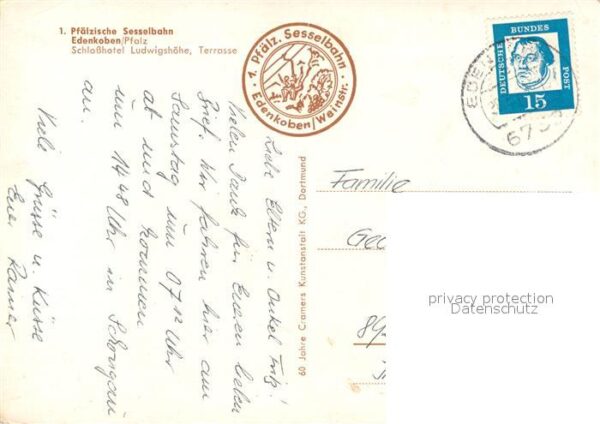 1. Pfälzische Sesselbahn
Edenkoben/Pfalz
Schloßhotel Ludwigshöhe, Terrasse
1. Pfälz. Sesselbahn
Edenkoben/Weinstr.
DEUTSCHE BUNDES POST
15
EDEN
673
Liebe Eltern u. Onkel Fritz!
Vielen Dank für Eueren lieben
Brief. Wir fahren hier am
Samstag um 07.12 Uhr
ab und kommen
um 14.48 Uhr in Schongau
an.
Viele Grüsse u. Küsse
Euer Rainer
60 Jahre Cramers Kunstanstalt KG., Dortmund
Familie
Geo
89
privacy protection
Datenschutz